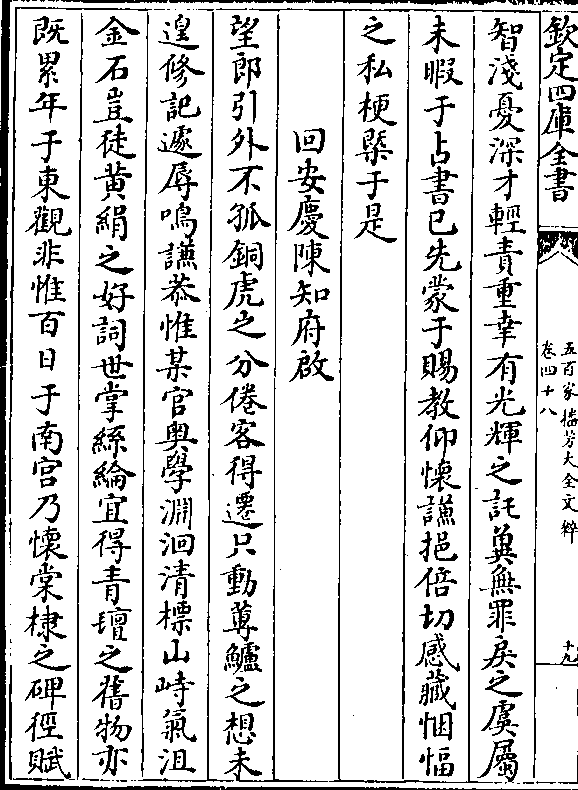 欽定四庫全書
五百家播芳大全文粹
卷四十八
十九
智淺憂深才輕責重幸有光輝之託冀無罪戾之虞屬
未暇于占書已先蒙于賜教仰懷謙挹倍切感藏悃愊
之私梗槩于是
回安慶陳知府啟
望郎引外不孤銅虎之分倦客得遷只動蓴鱸之想未
遑修記遽辱鳴謙恭惟某官輿學淵洄清標山峙氣沮
金石豈徒黃絹之好詞世掌絲綸宜得青氊之舊物亦
既累年于東觀非惟百日于南宫乃懷棠棣之碑徑賦